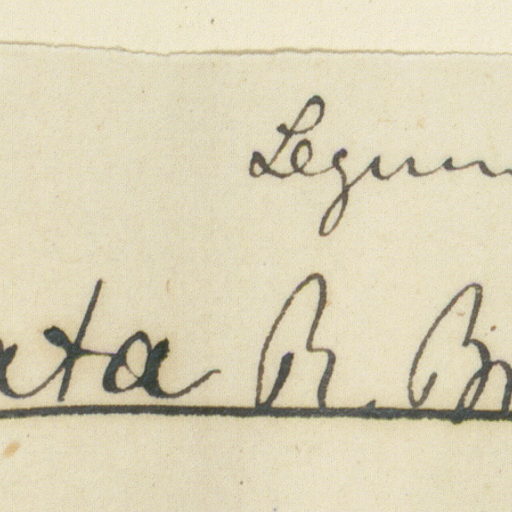 Legum
ata R. Br